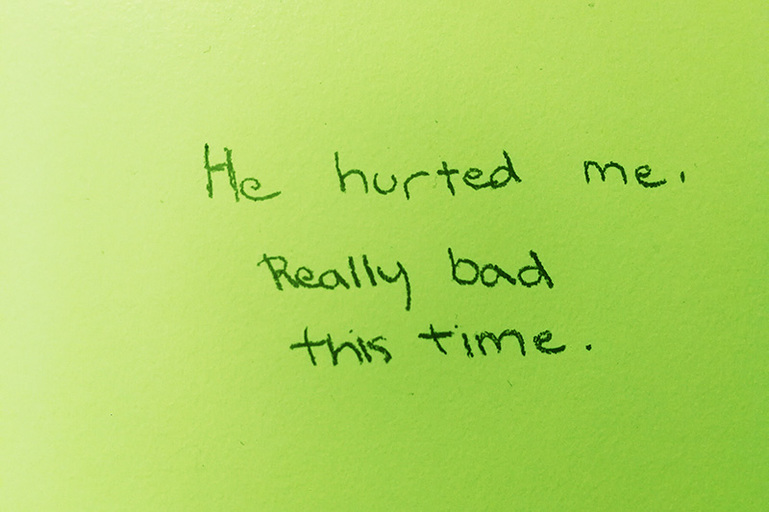 He hurted me.
Really bad
this time.